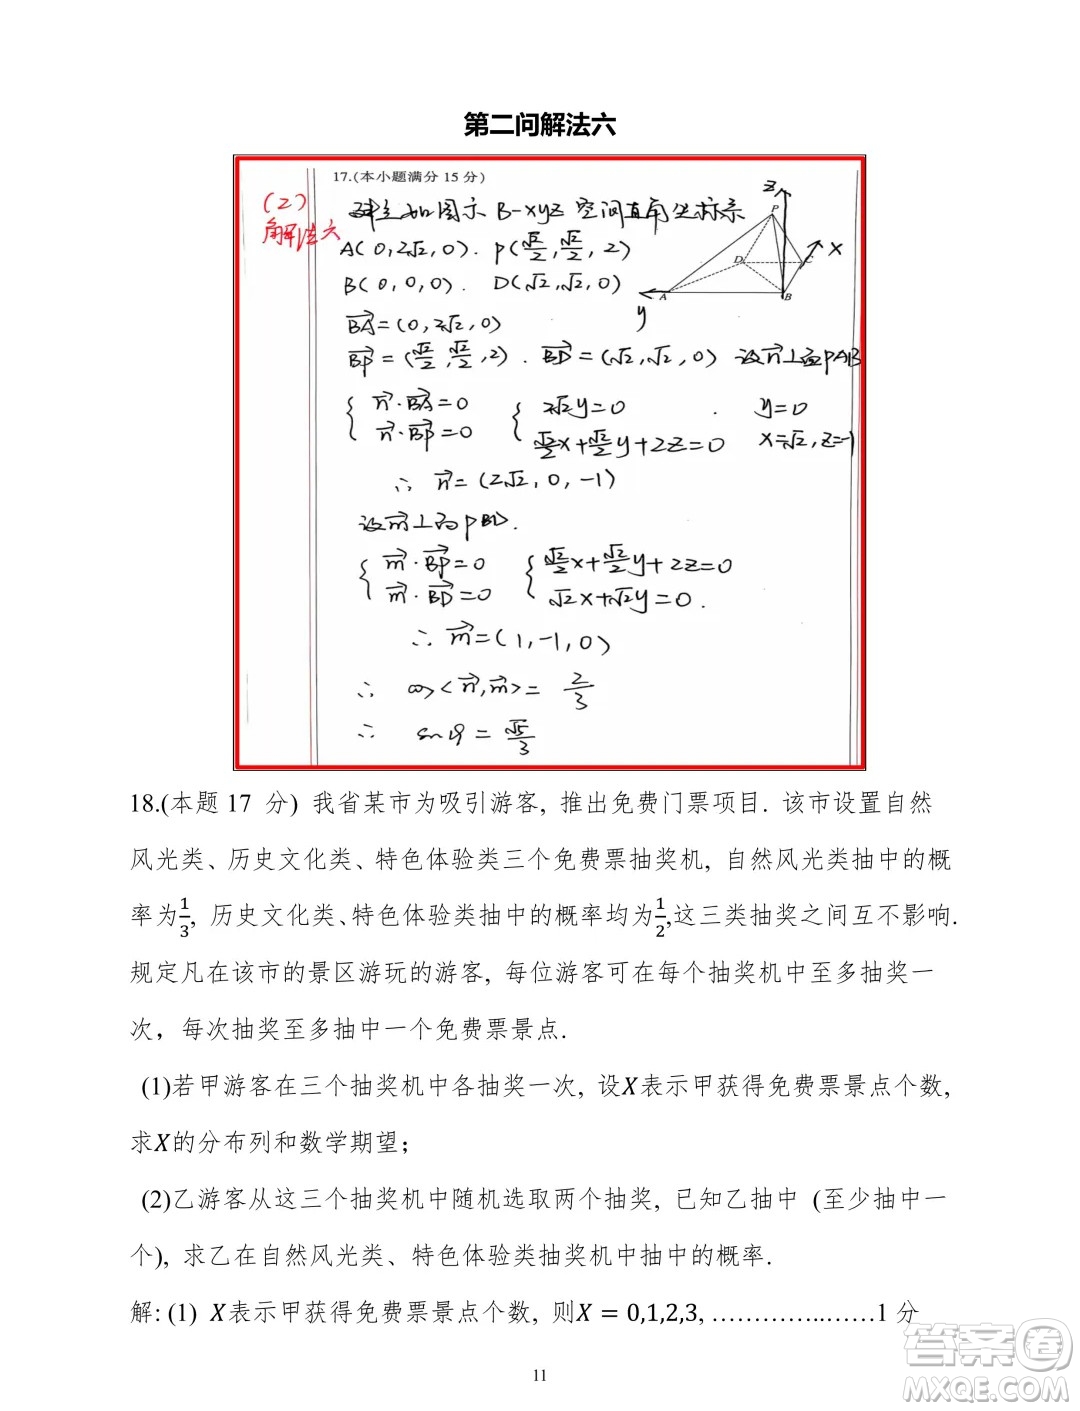 第二问解法六
17.(本小题满分 15 分)
(2)
解法六
建立如图示 B-xyz 空间直角坐标系
A(0, 2√2, 0). P(√2/2, √2/2, 2)
B(0, 0, 0). D(√2, √2, 0)
z
P
x
D
C
A
B
y
BA=(0, 2√2, 0)
BP=(√2/2, √2/2, 2). BD=(√2, √2, 0) 设n⊥面PAB
{ n·BA=0 { 2√2y=0 . y=0
n·BP=0 √2/2x+√2/2y+2z=0
∴ n=(2√2, 0, -1)
设m⊥面PBD.
{ m·BP=0 { √2/2x+√2/2y+2z=0
m·BD=0 √2x+√2y=0.
∴ m=(1, -1, 0)
∴ cos<n, m>= 2/3
∴ sinθ = √5/3
18.(本题 17 分) 我省某市为吸引游客, 推出免费门票项目. 该市设置自然
风光类、历史文化类、特色体验类三个免费票抽奖机, 自然风光类抽中的概
率为1/3, 历史文化类、特色体验类抽中的概率均为1/2,这三类抽奖之间互不影响.
规定凡在该市的景区游玩的游客, 每位游客可在每个抽奖机中至多抽奖一
次，每次抽奖至多抽中一个免费票景点.
(1)若甲游客在三个抽奖机中各抽奖一次, 设X表示甲获得免费票景点个数,
求X的分布列和数学期望；
(2)乙游客从这三个抽奖机中随机选取两个抽奖, 已知乙抽中 (至少抽中一
个), 求乙在自然风光类、特色体验类抽奖机中抽中的概率.
解: (1) X表示甲获得免费票景点个数, 则X = 0,1,2,3, …………..……1 分
11
答案圈
MXQE.COM